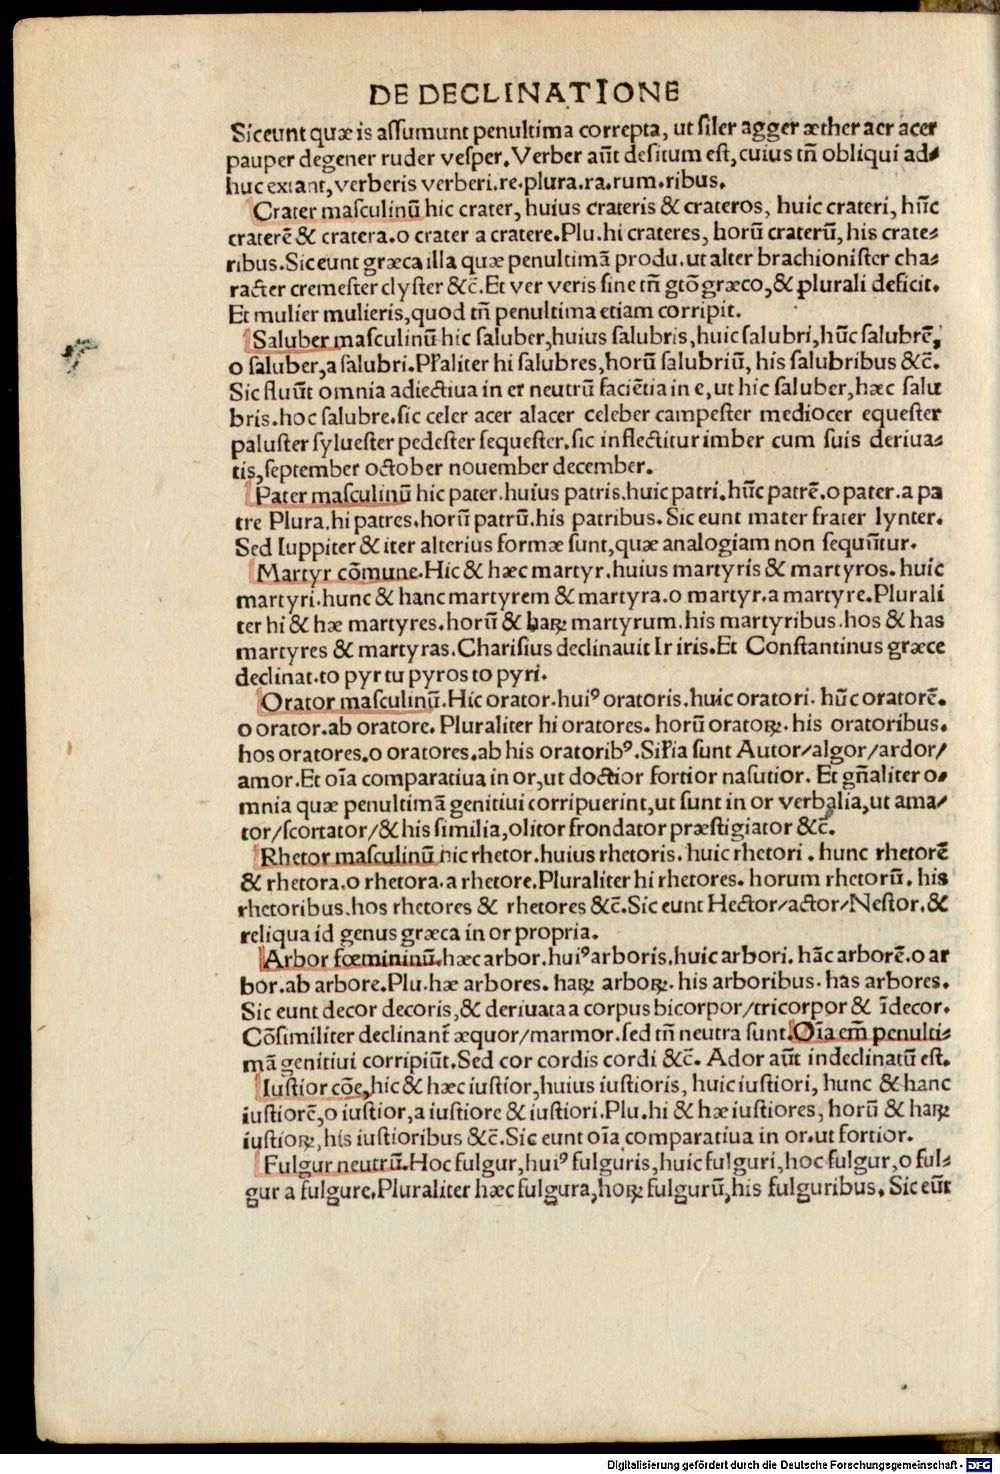 DE DECLINATIONE
Sic eunt quæ is aſſumunt penultima correpta, ut ſiler agger æther aer acer
pauper degener ruder veſper. Verber aūt deſitum eſt, cuius tn̄ obliqui ad⸗
huc extant, verberis verberi.re.plura.ra.rum.ribus.
Crater maſculinū hic crater, huius crateris & crateros, huic crateri, hūc
craterē & cratera.o crater a cratere.Plu.hi crateres, horū craterū, his crate⸗
ribus.Sic eunt græca illa quæ penultimā produ.ut alter brachioniſter cha⸗
racter cremeſter clyſter &c̄.Et ver veris ſine tn̄ gtō græco, & plurali deficit.
Et mulier mulieris, quod tn̄ penultima etiam corripit.
Saluber maſculinū hic ſaluber, huius ſalubris, huic ſalubri, hūc ſalubrē,
o ſaluber, a ſalubri.Pꝉaliter hi ſalubres, horū ſalubriū, his ſalubribus &c̄.
Sic fluūt omnia adiectiua in er neutrū faciētia in e, ut hic ſaluber, hæc ſalu
bris.hoc ſalubre.ſic celer acer alacer celeber campeſter mediocer equeſter
paluſter ſylueſter pedeſter ſequeſter.ſic inflectitur imber cum ſuis deriua⸗
tis, ſeptember october nouember december.
Pater maſculinū hic pater.huius patris.huic patri.hūc patrē.o pater.a pa
tre Plura.hi patres.horū patrū.his patribus.Sic eunt mater frater lynter.
Sed Iuppiter & iter alterius formæ ſunt, quæ analogiam non ſequūtur.
Martyr cōmune.Hic & hæc martyr.huius martyris & martyros.huic
martyri.hunc & hanc martyrem & martyra.o martyr.a martyre.Plurali
ter hi & hæ martyres.horū & haꝝ martyrum.his martyribus.hos & has
martyres & martyras.Chariſius declinauit Ir iris.Et Conſtantinus græce
declinat.to pyr tu pyros to pyri.
Orator maſculinū.Hic orator.huiꝰ oratoris.huic oratori.hūc oratorē.
o orator.ab oratore.Pluraliter hi oratores.horū oratoꝝ.his oratoribus.
hos oratores.o oratores.ab his oratoribꝰ.Siꝉia ſunt Autor/algor/ardor/
amor.Et oīa comparatiua in or, ut doctior fortior naſutior. Et gn̄aliter o⸗
mnia quæ penultimā genitiui corripuerint, ut ſunt in or verbalia, ut ama⸗
tor/ſcortator/& his ſimilia, olitor frondator præſtigiator &c̄.
Rhetor maſculinū hic rhetor.huius rhetoris.huic rhetori.hunc rhetorē
& rhetora.o rhetora.a rhetore.Pluraliter hi rhetores.horum rhetorū.his
rhetoribus.hos rhetores & rhetores &c̄.Sic eunt Hector/actor/Neſtor.&
reliqua id genus græca in or propria.
Arbor fœmininū.hæc arbor.huiꝰ arboris.huic arbori.hāc arborē.o ar
bor.ab arbore.Plu.hæ arbores.haꝝ arboꝝ.his arboribus.has arbores.
Sic eunt decor decoris, & deriuata a corpus bicorpor/tricorpor & īdecor.
Cōſimiliter declinant̄ æquor/marmor.ſed tn̄ neutra ſunt.Oīa em̄ penulti⸗
mā genitiui corripiūt.Sed cor cordis cordi &c̄. Ador aūt indeclinatū eſt.
Iuſtior cōe, hic & hæc iuſtior, huius iuſtioris, huic iuſtiori, hunc & hanc
iuſtiorē, o iuſtior, a iuſtiore & iuſtiori.Plu.hi & hæ iuſtiores, horū & haꝝ
iuſtioꝝ, his iuſtioribus &c̄.Sic eunt oīa comparatiua in or.ut fortior.
Fulgur neutrū.Hoc fulgur, huiꝰ fulguris, huic fulguri, hoc fulgur, o ful⸗
gur a fulgure.Pluraliter hæc fulgura, hoꝝ fulgurū, his fulguribus. Sic eūt
Digitalisierung gefördert durch die Deutsche Forschungsgemeinschaft - DFG